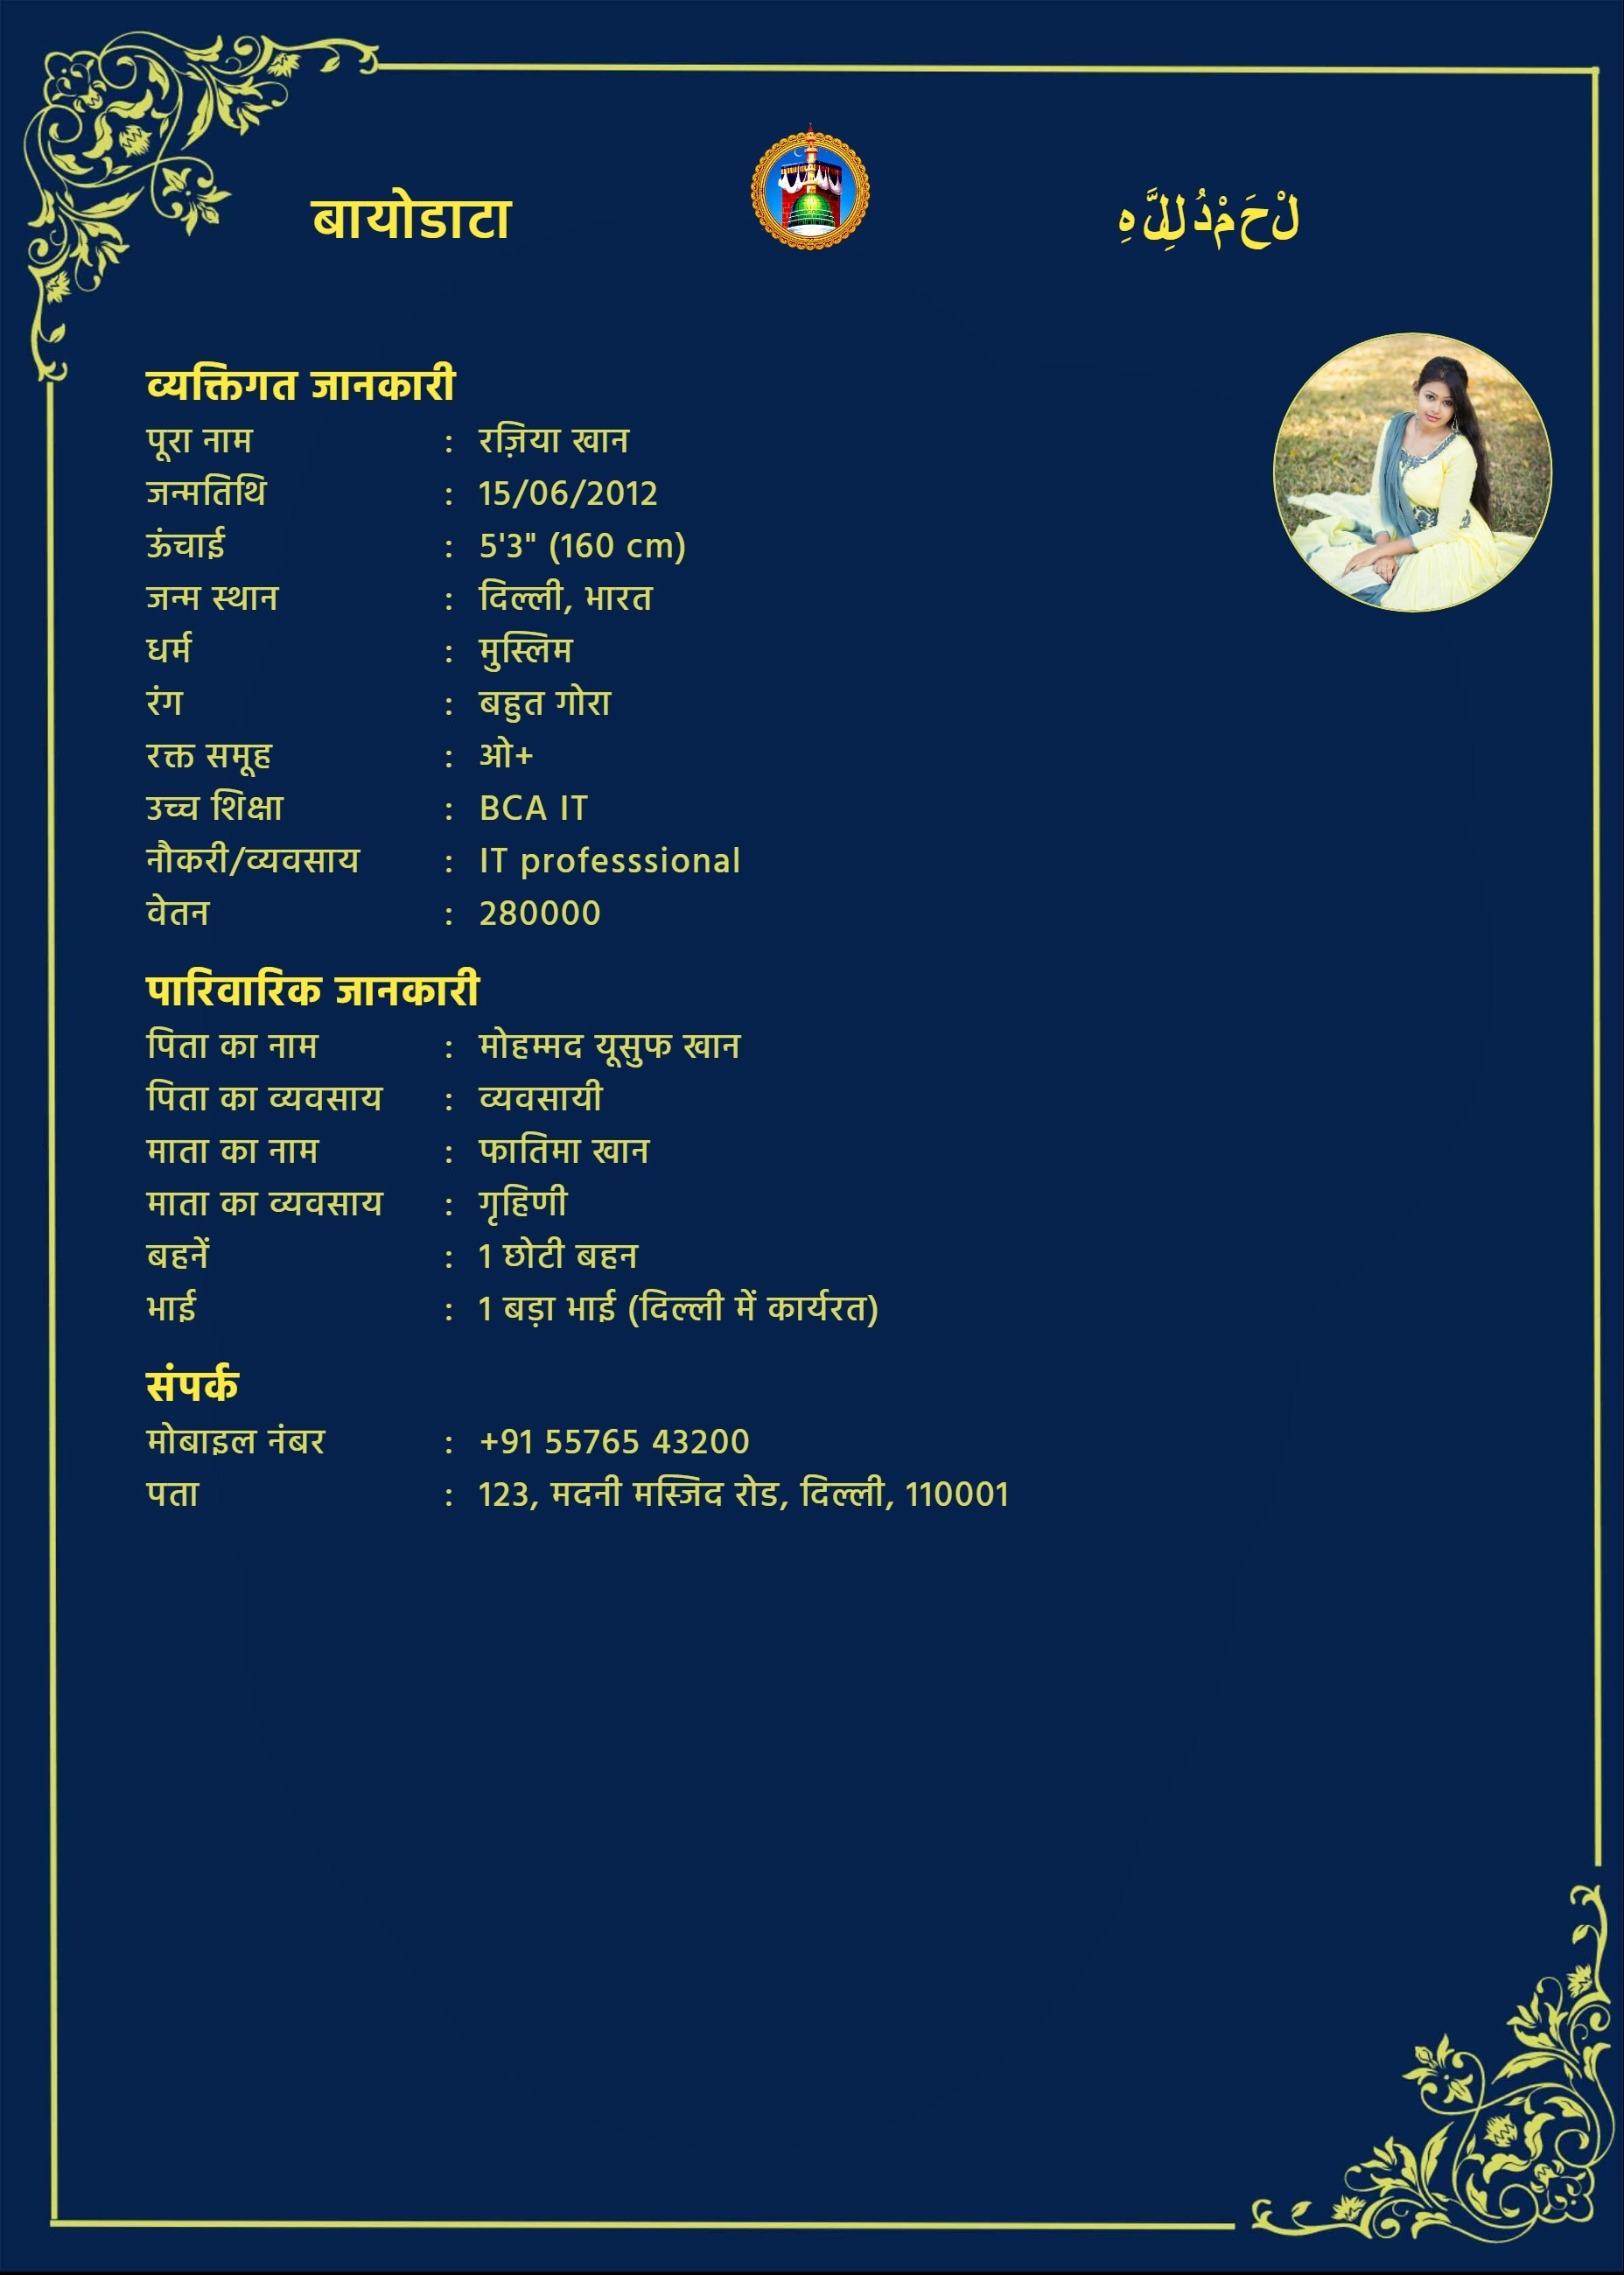 बायोडाटा
لْحَمْدُ لِلَّهِ
व्यक्तिगत जानकारी
पूरा नाम : रज़िया खान
जन्मतिथि : 15/06/2012
ऊंचाई : 5'3" (160 cm)
जन्म स्थान : दिल्ली, भारत
धर्म : मुस्लिम
रंग : बहुत गोरा
रक्त समूह : ओ+
उच्च शिक्षा : BCA IT
नौकरी/व्यवसाय : IT professsional
वेतन : 280000
पारिवारिक जानकारी
पिता का नाम : मोहम्मद यूसुफ खान
पिता का व्यवसाय : व्यवसायी
माता का नाम : फातिमा खान
माता का व्यवसाय : गृहिणी
बहनें : 1 छोटी बहन
भाई : 1 बड़ा भाई (दिल्ली में कार्यरत)
संपर्क
मोबाइल नंबर : +91 55765 43200
पता : 123, मदनी मस्जिद रोड, दिल्ली, 110001